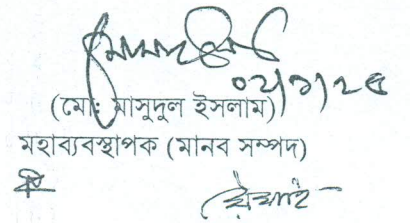 ০২/১/২৫
(মোঃ মাসুদুল ইসলাম)
মহাব্যবস্থাপক (মানব সম্পদ)